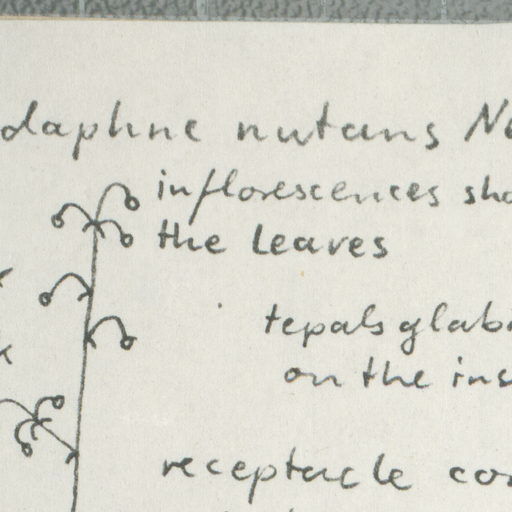 daphne nutans Ne
inflorescences sho
the leaves
tepals glab
on the ins
receptacle co